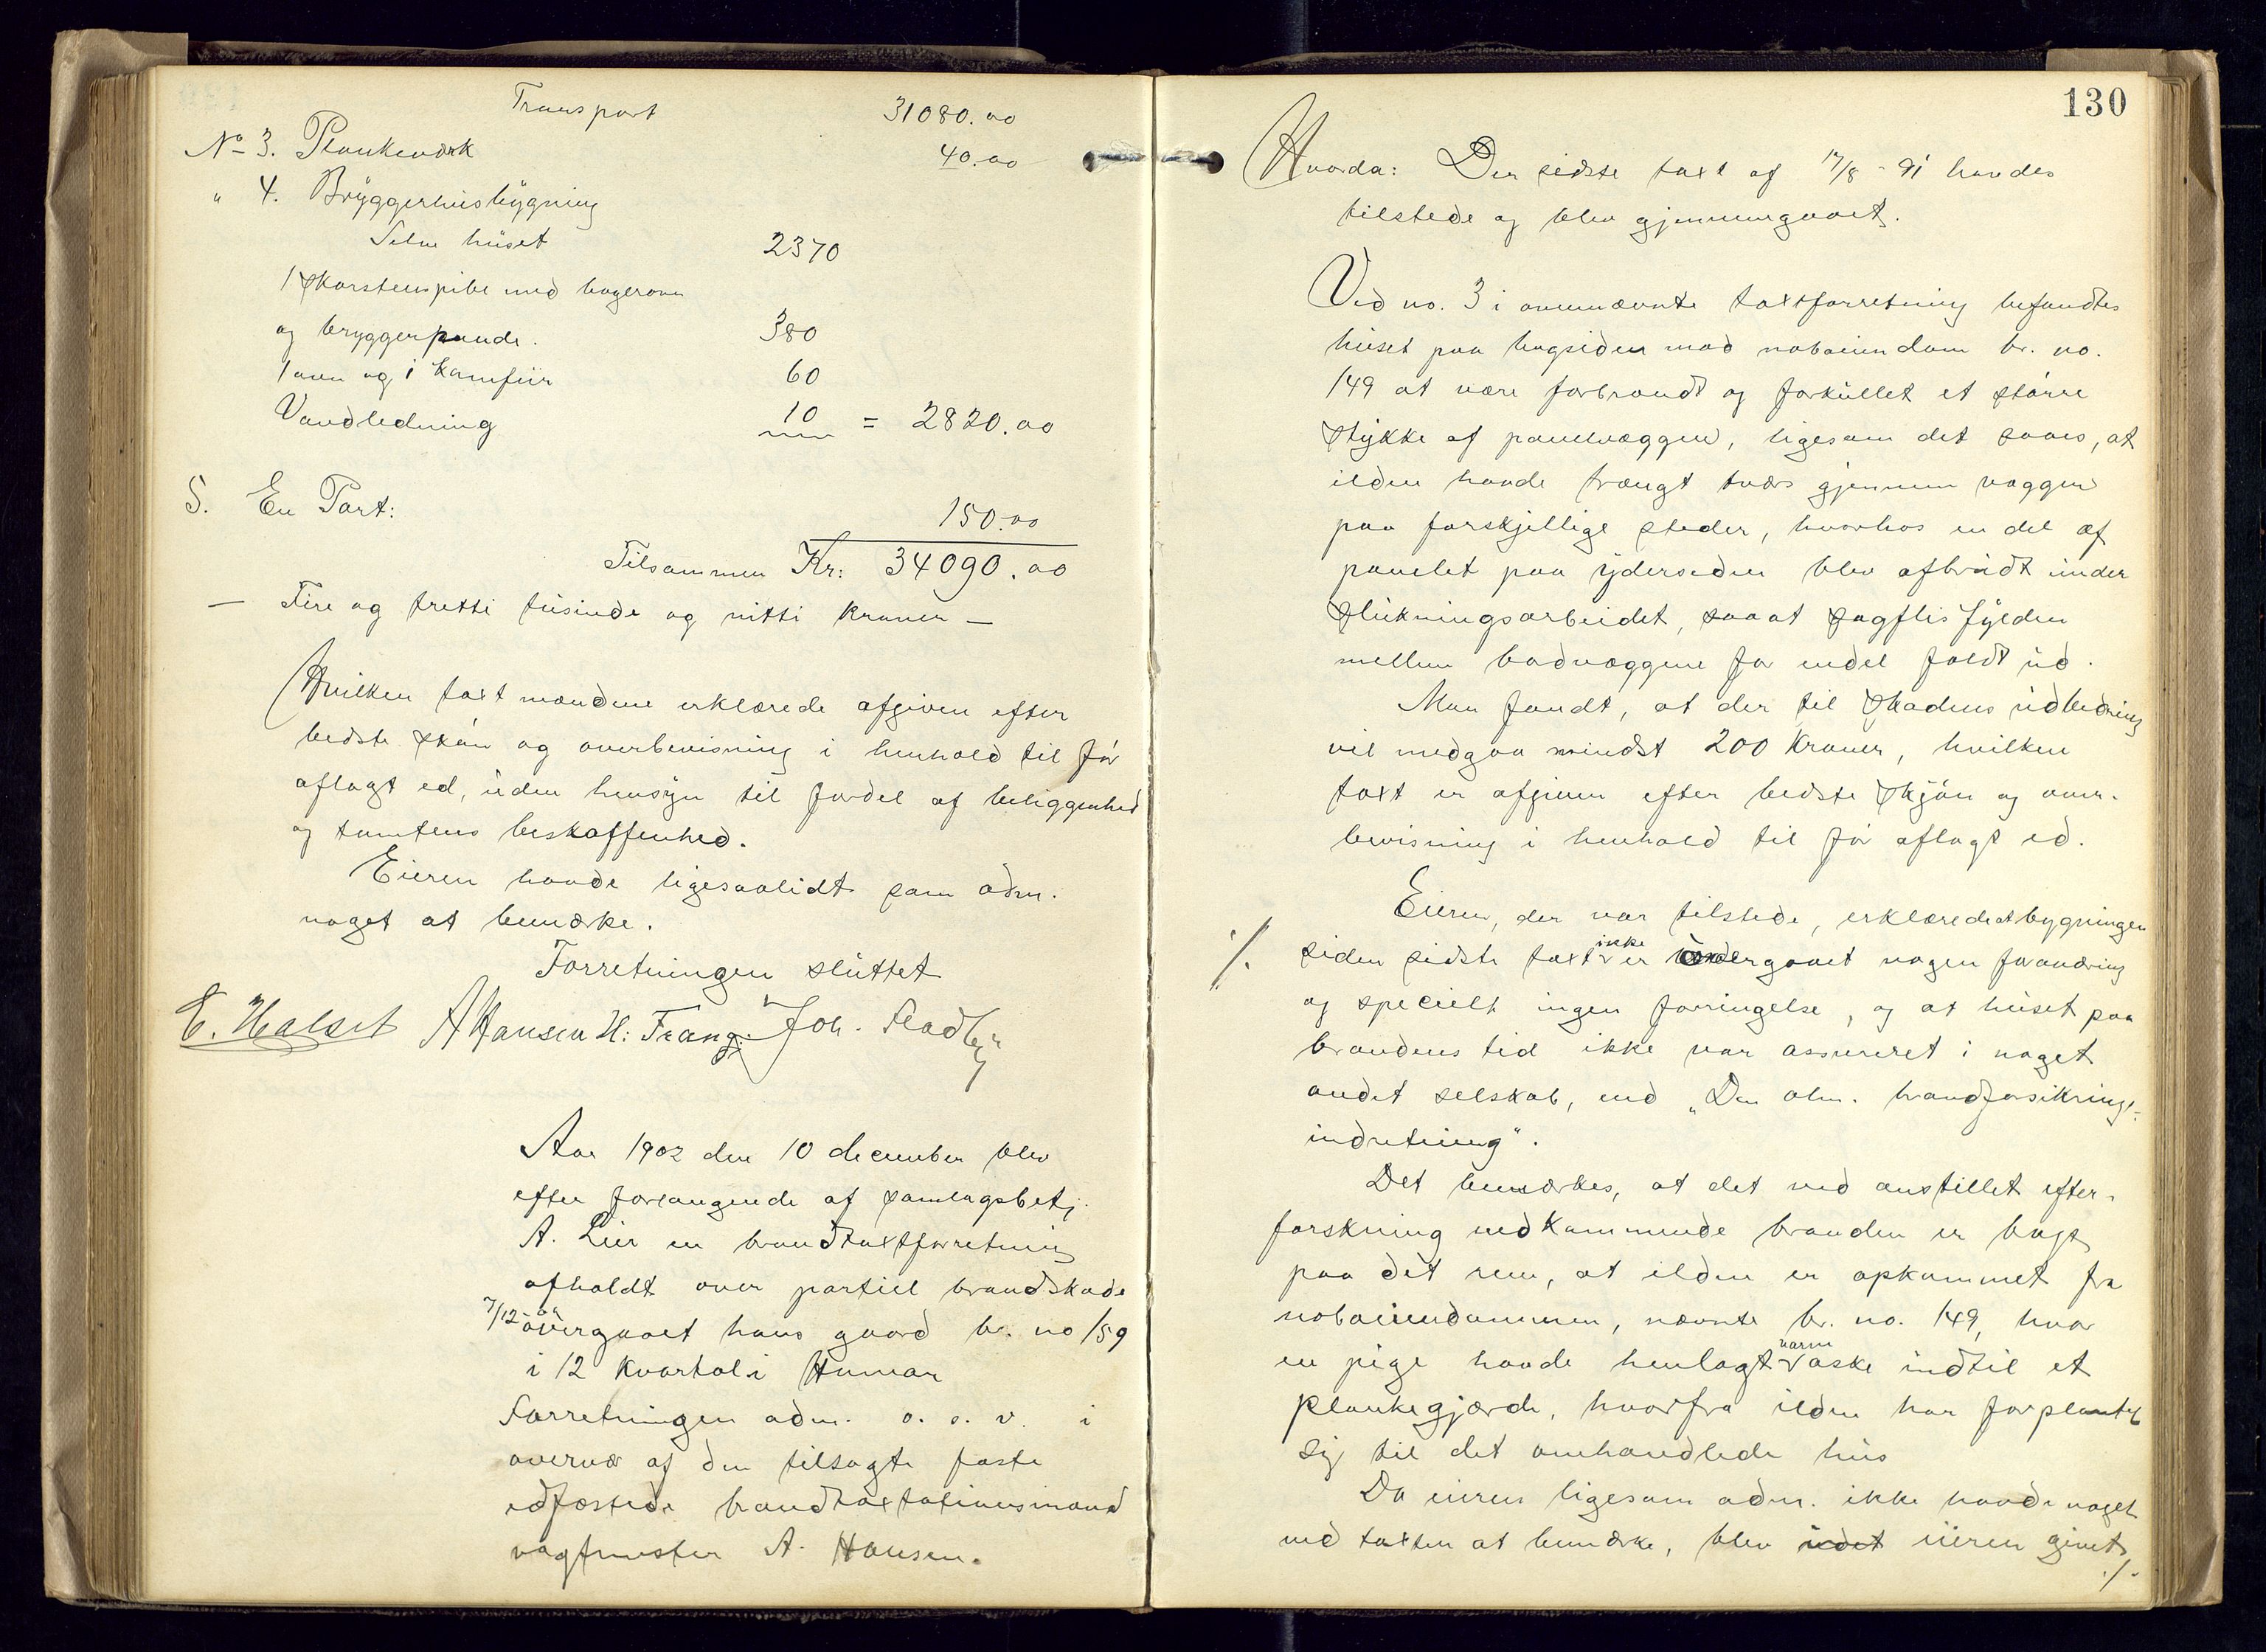 Transport 31080.00
No 3. Plankeværk 40.00
" 4. Bryggerhusbygning
Selve huset 2370
1 Skorstenspibe med bagerovn
og bryggerpande. 380
1 ovn og 1 Komfur 60
Vandledning 10 = 2820.00
5. En Port: 150.00
Tilsammen Kr: 34090.00
— Fire og tretti tusinde og nitti kroner —
Hvilken taxt mændene erklærede afgiven efter
bedste skøn og overbevisning i henhold til før
aflagt ed, uden hensyn til fordel af beliggenhed
og tomtens beskaffenhed.
Eieren havde ligesaalidt som adm.
noget at bemærke.
Forretningen sluttet
E. Halset A Hansen H: Frang. Joh. Stadby
Aar 1902 den 10 december blev
efter forlangende af samlagsbetj.
A. Lier en brandtaxtforretning
afholdt over partiel brandskade
7/12-02 overgaaet hans gaard br. no 159
i 12 kvartal i Hamar
Forretningen adm. o. s. v. i
overvær af den tilsagte faste
edfæstede brandtaxtationsmand
vagtmester A. Hansen.
130
Hvorda: Den sidste taxt af 17/8-91 havdes
tilstede og blev gjennemgaaet.
Ved no. 3 i ovennævnte taxtforretning befandtes
huset paa bagsiden mod naboeiendom br. no.
149 at være forbrændt og forkullet et større
stykke af panelvæggen, ligesom det saaes, at
ilden havde trængt tværs gjennem væggen
paa forskjellige steder, hvorhos en del af
panelet paa ydersiden blev afbrudt under
slukningsarbeidet, saaat sagflisfylden
mellem bordvæggene for endel faldt ud.
Man fandt, at der til skadens udbedring
vil medgaa mindst 200 kroner, hvilken
taxt er afgiven efter bedste skjøn og over-
bevisning i henhold til før aflagt ed.
Eieren, der var tilstede, erklærede at bygningen
·/. siden sidste taxt ikke er undergaaet nogen forandring
og specielt ingen forringelse, og at huset paa
brandens tid ikke var assureret i noget
andet selskab, end „Den alm. brandforsikrings-
indretning".
Det bemærkes, at det ved anstillet efter-
forskning vedkommende branden er bragt
paa det rene, at ilden er opkommet fra
naboeiendommen, nævnte br. no. 149, hvor
en pige havde henlagt varm aske indtil et
plankegjærde, hvorfra ilden har forplantet
sig til det omhandlede hus
Da eieren ligesom adm. ikke havde noget
ved taxten at bemærke, blev udet eieren givet
·/.